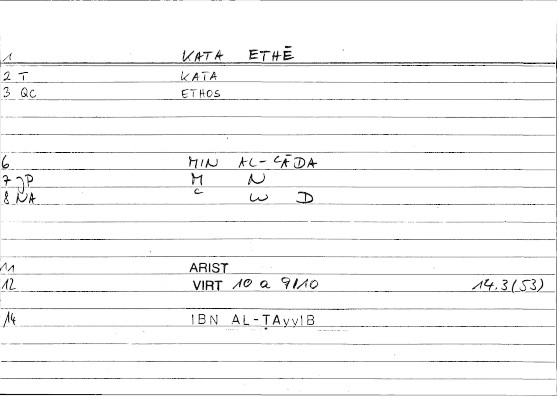 1 KATA ETHĒ
2 T KATA
3 QC ETHOS
6 MIN AL-ʿĀDA
7 JP M N
8 NA ʿ W D
11 ARIST
12 VIRT 10 a 9/10 14.3(53)
14 IBN AL-ṬAyyIB